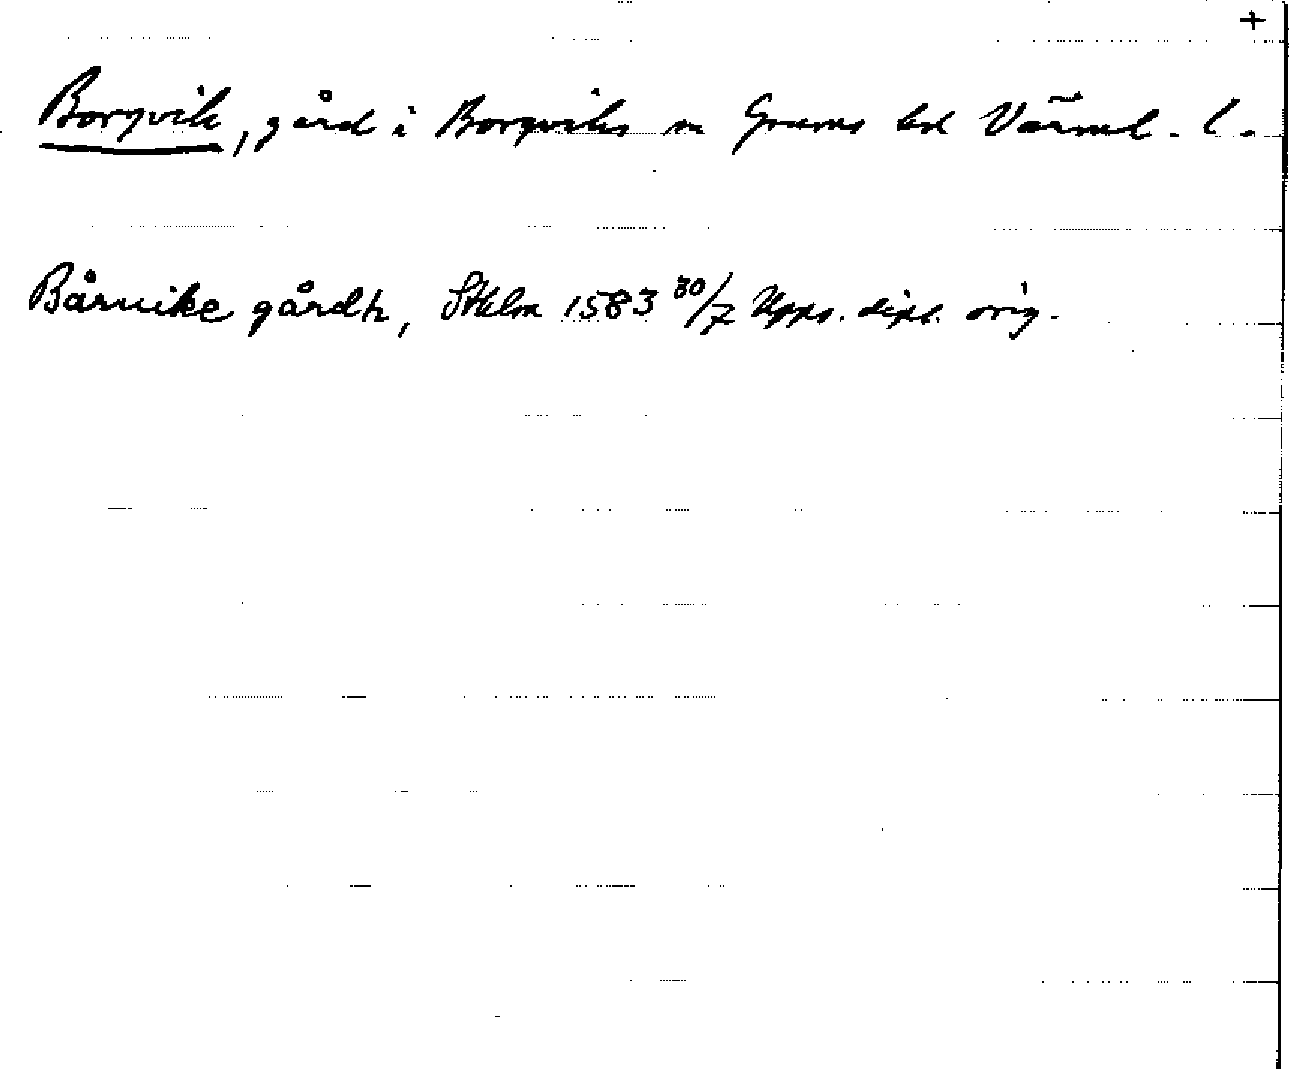 +
Borgvik, gård i Borgviks sn Grums hd Värml. l.
Båruike gårdh, Sthlm 1583 30/7 Upps. dipl. orig.